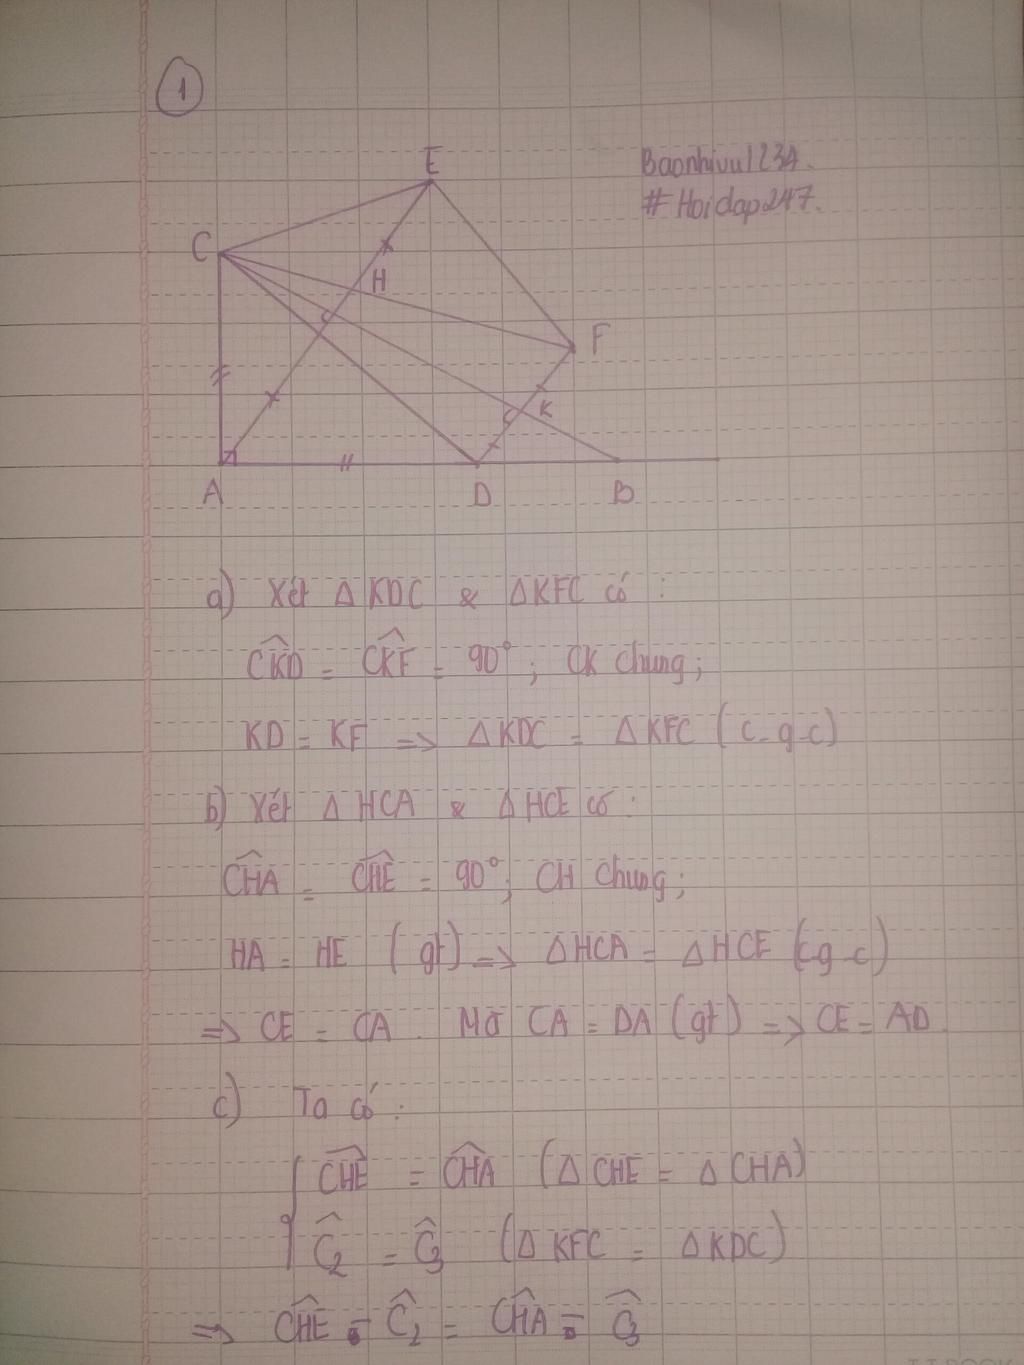 1
Baonhivu1234.
#Hoidap247.
E
C
H
F
K
A D B
a) Xét Δ KDC & ΔKFC có :
CKD = CKF = 90° ; CK chung ;
KD = KF => ΔKDC = ΔKFC ( c-g-c)
b) Xét Δ HCA & Δ HCE có :
CHA = CHE = 90° ; CH chung ;
HA = HE (gt) => ΔHCA = ΔHCE (c-g-c)
=> CE = CA . Mà CA = DA (gt) => CE = AD
c) Ta có :
CHE = CHA (Δ CHE = Δ CHA)
Ĉ2 = Ĉ3 (Δ KFC = ΔKDC)
=> CHE = Ĉ2 = CHA = Ĉ3